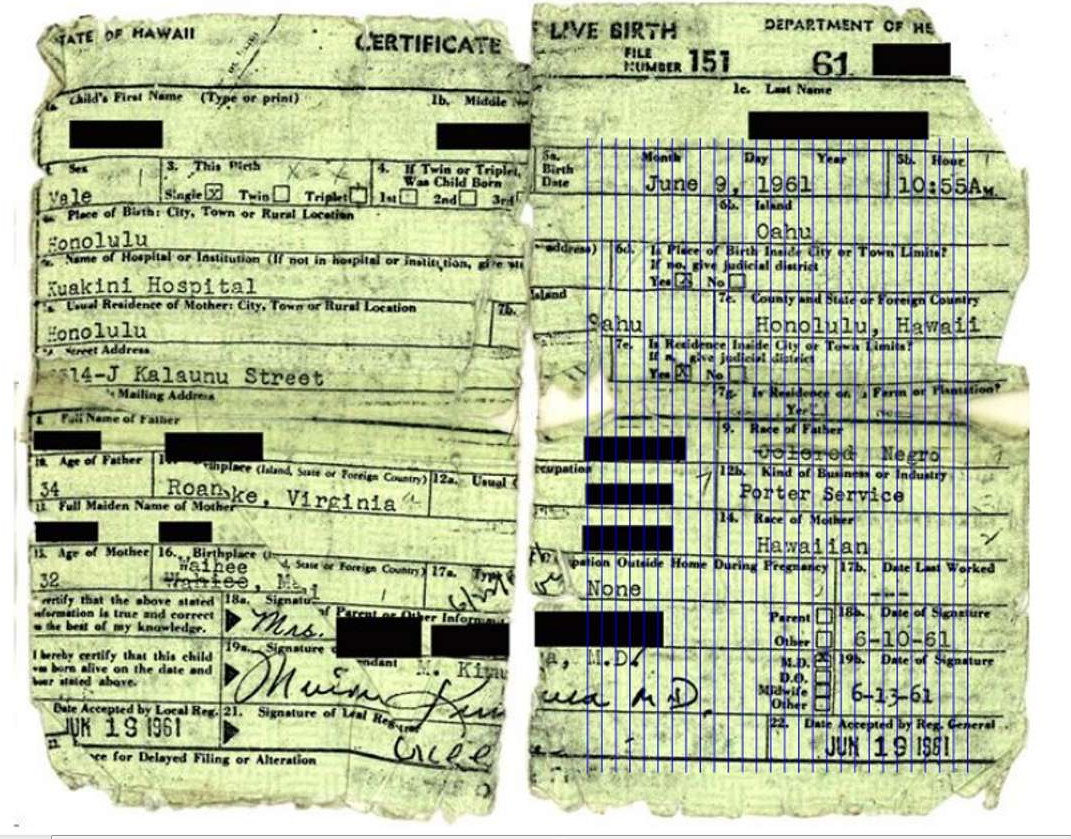 STATE OF HAWAII CERTIFICATE OF LIVE BIRTH DEPARTMENT OF HE
FILE NUMBER 151 61
Child's First Name (Type or print) 1b. Middle N 1c. Last Name
Sex 3. This Birth 4. If Twin or Triplet, Was Child Born 5a. Birth Date Month Day Year 5b. Hour
Male Single X Twin Triplet 1st 2nd 3rd June 9, 1961 10:55 AM
Place of Birth: City, Town or Rural Location 6b. Island
Honolulu Oahu
Name of Hospital or Institution (If not in hospital or institution, give st address) 6d. Is Place of Birth Inside City or Town Limits? If no, give judicial district
Kuakini Hospital Yes X No
Usual Residence of Mother: City, Town or Rural Location 7b. Island 7c. County and State or Foreign Country
Honolulu Oahu Honolulu, Hawaii
Street Address 7e. Is Residence Inside City or Town Limits? If no, give judicial district
14-J Kalaunu Street Yes X No
Mailing Address 7g. Is Residence on a Farm or Plantation?
Yes
8. Full Name of Father 9. Race of Father
Colored Negro
10. Age of Father 11. Birthplace (Island, State or Foreign Country) 12a. Usual Occupation 12b. Kind of Business or Industry
34 Roanoke, Virginia Porter Service
13. Full Maiden Name of Mother 14. Race of Mother
Hawaiian
15. Age of Mother 16. Birthplace (Island, State or Foreign Country) 17a. Type pation Outside Home During Pregnancy 17b. Date Last Worked
32 Waihee Wahiee, Maui None ---
I certify that the above stated information is true and correct to the best of my knowledge. 18a. Signature of Parent or Other Informant Parent Other 18b. Date of Signature
Mrs. 6-10-61
I hereby certify that this child was born alive on the date and hour stated above. 19a. Signature of Attendant M. Kim a, M.D. M.D. X D.O. Midwife Other 19b. Date of Signature
M.D. 6-13-61
Date Accepted by Local Reg. 21. Signature of Local Registrar 22. Date Accepted by Reg. General
JUN 19 1961 JUN 19 1961
ce for Delayed Filing or Alteration